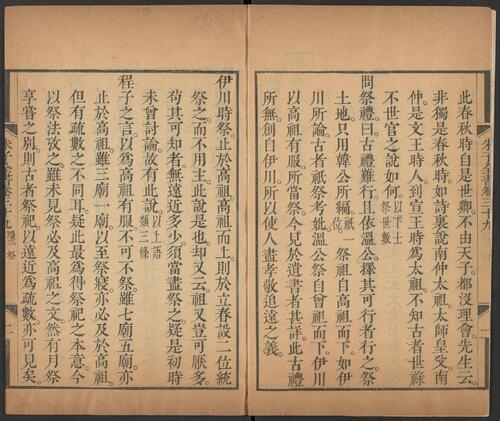 此春秋時自是世卿不由天子都沒理會先生云
非獨是春秋時如詩裏說南仲太祖太師皇父南
仲是文王時人到宣王時為太祖不知古者世祿
不世官之說如何以下士祭世數
問祭禮曰古禮難行且依溫公擇其可行者行之祭
土地只用韓公所編祇一祭祖自高祖而下如伊
川所論古者祇祭考妣溫公祭自曾祖而下伊川
以高祖有服所當祭今見於遺書者甚詳此古禮
所無創自伊川所以使人盡孝敬追遠之義
朱子全書卷三十九
伊川時祭止於高祖高祖而上則於立春設二位統
祭之而不用主此說是也却又云祖又豈可厭多
苟其可知者無遠近多少須當盡祭之疑是初時
未曾討論故有此說以上語類三條
程子之言以為高祖有服不可不祭雖七廟五廟亦
止於高祖雖三廟一廟以至祭寢亦必及於高祖
但有疏數之不同耳疑此最為得祭祀之本意今
以祭法攷之雖未見祭必及高祖之文然有月祭
享嘗之別則古者祭祀以遠近為疏數亦可見矣
朱子全書卷三十九 禮 祭